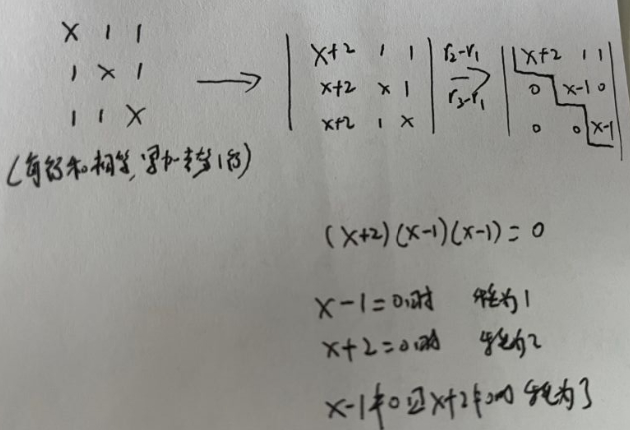 x 1 1
1 x 1
1 1 x
(每行和相等,累加去第1行)
x+2 1 1
x+2 x 1
x+2 1 x
r2-r1
r3-r1
x+2 1 1
0 x-1 0
0 0 x-1
(x+2)(x-1)(x-1)=0
x-1=0时 秩为1
x+2=0时 秩为2
x-1≠0且x+2≠0时 秩为3